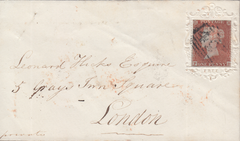 Leonard Esquire
5 Grays Inn Square
London
private